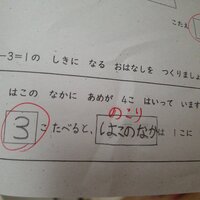 こたえ
-3=1の しきに なる おはなしを つくりましょ
はこの なかに あめが 4こ はいって います
のこり
3 こ たべると、はこのなかは 1こに